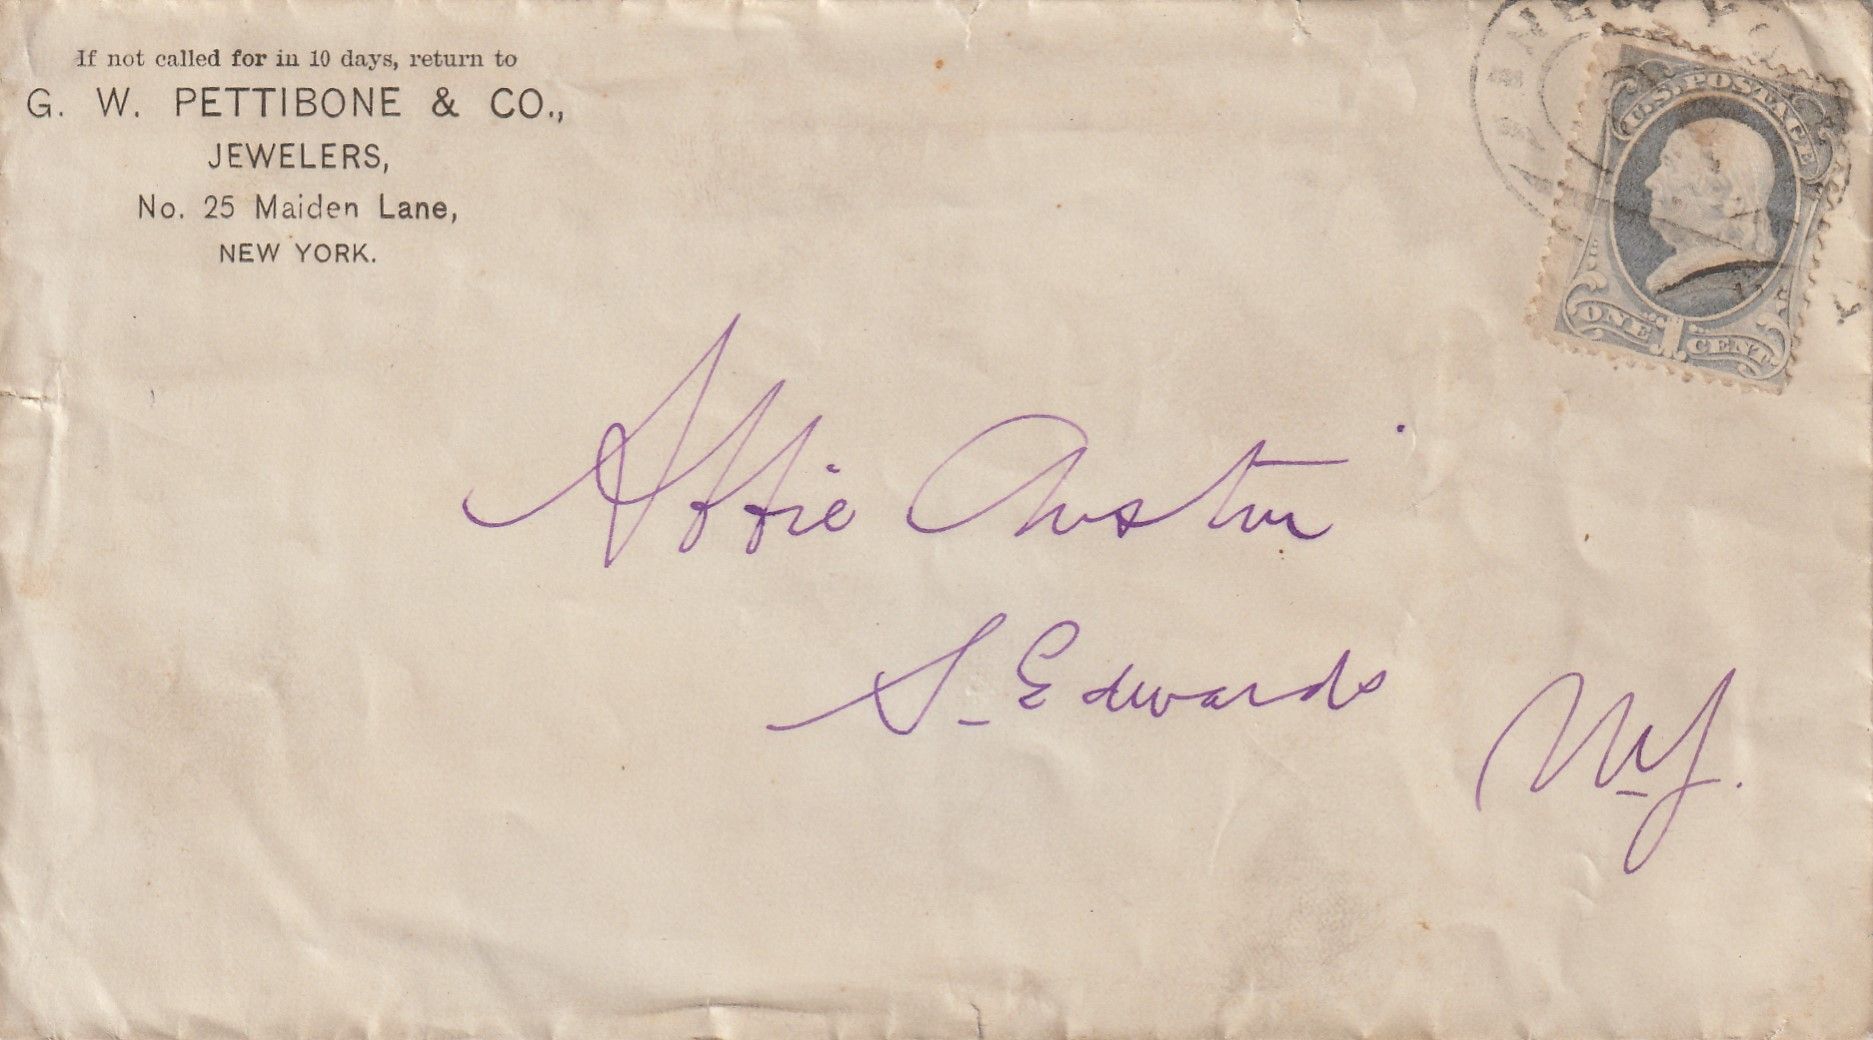 If not called for in 10 days, return to
G. W. PETTIBONE & CO.,
JEWELERS,
No. 25 Maiden Lane,
NEW YORK.
NEW YO
U.S. POSTAGE
ONE 1 CENT
Affie Austin
S. Edwards
N.Y.